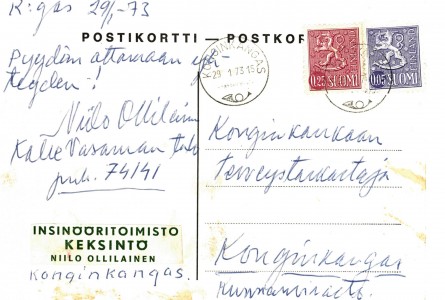 K:gas 29/1-73
POSTIKORTTI – POSTKOR
Pyydän ottamaan
Niilo Ollilainen
Kalle Vasaman talo
puh. 74141
INSINÖÖRITOIMISTO
KEKSINTÖ
NIILO OLLILAINEN
Konginkangas.
KONGINKANGAS
29 1 73 15
0,25 SUOMI
FINLAND
0,05 SUOMI
FINLAND
Konginkankaan
Terveystarkastaja
Konginkangas
Kunnanvirasto